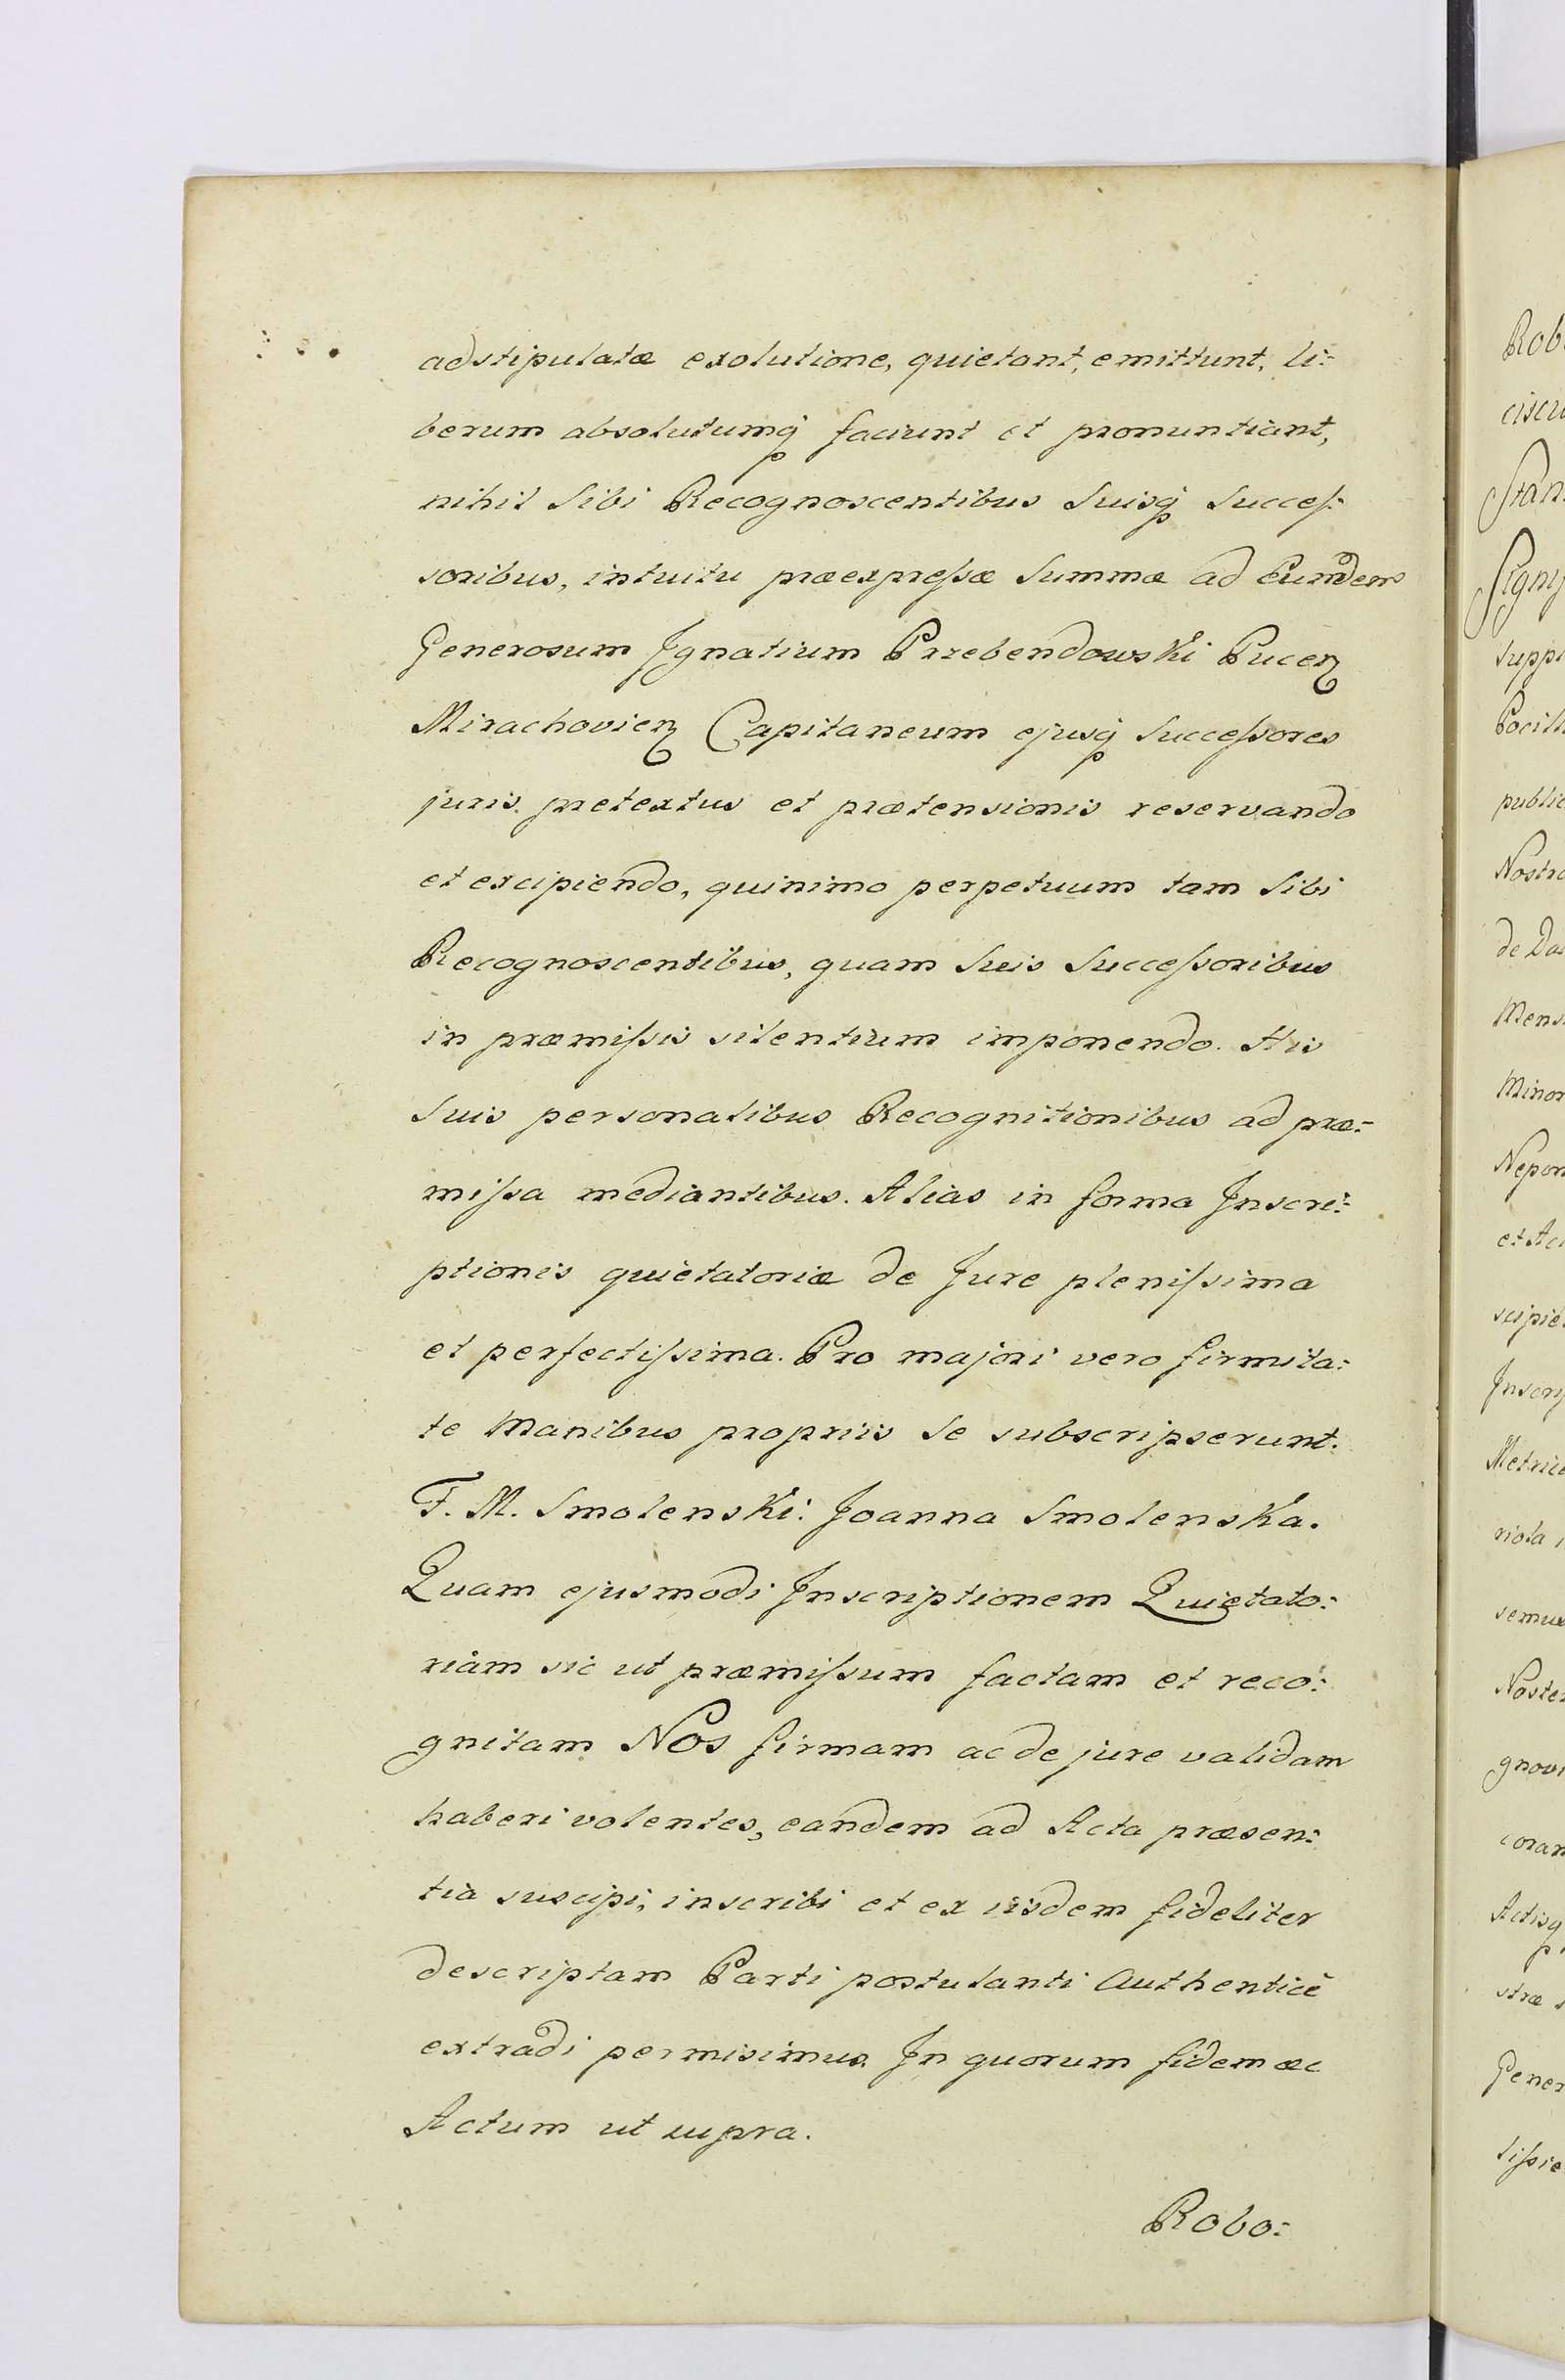 adstipulatæ exolutione, quietant, emittunt, li:
berum absolutumq́ faciunt et pronuntiant,
nihil Sibi Recognoscentibus Suisq́ Succeſ:
soribus, intuitu præexpreſsæ Summæ ad Eundem
Generosum Jgnatium Przebendowski Pucen
Mirachovien Capitaneum ejusq́ Succeſsores
juris pretextus et prætensionis reservando
et excipiendo, quinimo perpetuum tam Sibi
Recognoscentibus, quam Suis Succeſsoribus
in præmiſsis silentium imponendo. His
Suis personalibus Recognitionibus ad præ:
miſsa mediantibus. Alias in forma Jnscri:
ptionis quietatoriæ de Jure pleniſsima
et perfectiſsima. Pro majori vero firmita:
te Manibus propriis Se subscripserunt.
F. M. Smolenski: Joanna Smolenska.
Quam ejusmodi Jnscriptionem Quietato:
riam sic ut præmiſsum factam et reco:
gnitam Nos firmam ac de jure validam
haberi volentes, eandem ad Acta præsen:
tia suscipi, inscribi et ex iisdem fideliter
descriptam Parti postulanti Authenticè
extradi permisimus. Jn quorum fidem &c
Actum ut supra.
Robo:
Rob
Stan
Signy
Suppl
Pocill
public
Nostra
de Da
Mens
Minor
Nepom
et Ac
scipie
Jnscrip
Metric
riola
semus
Noster
gnovi
coram
Actisq
stræ
Gener
liſsie